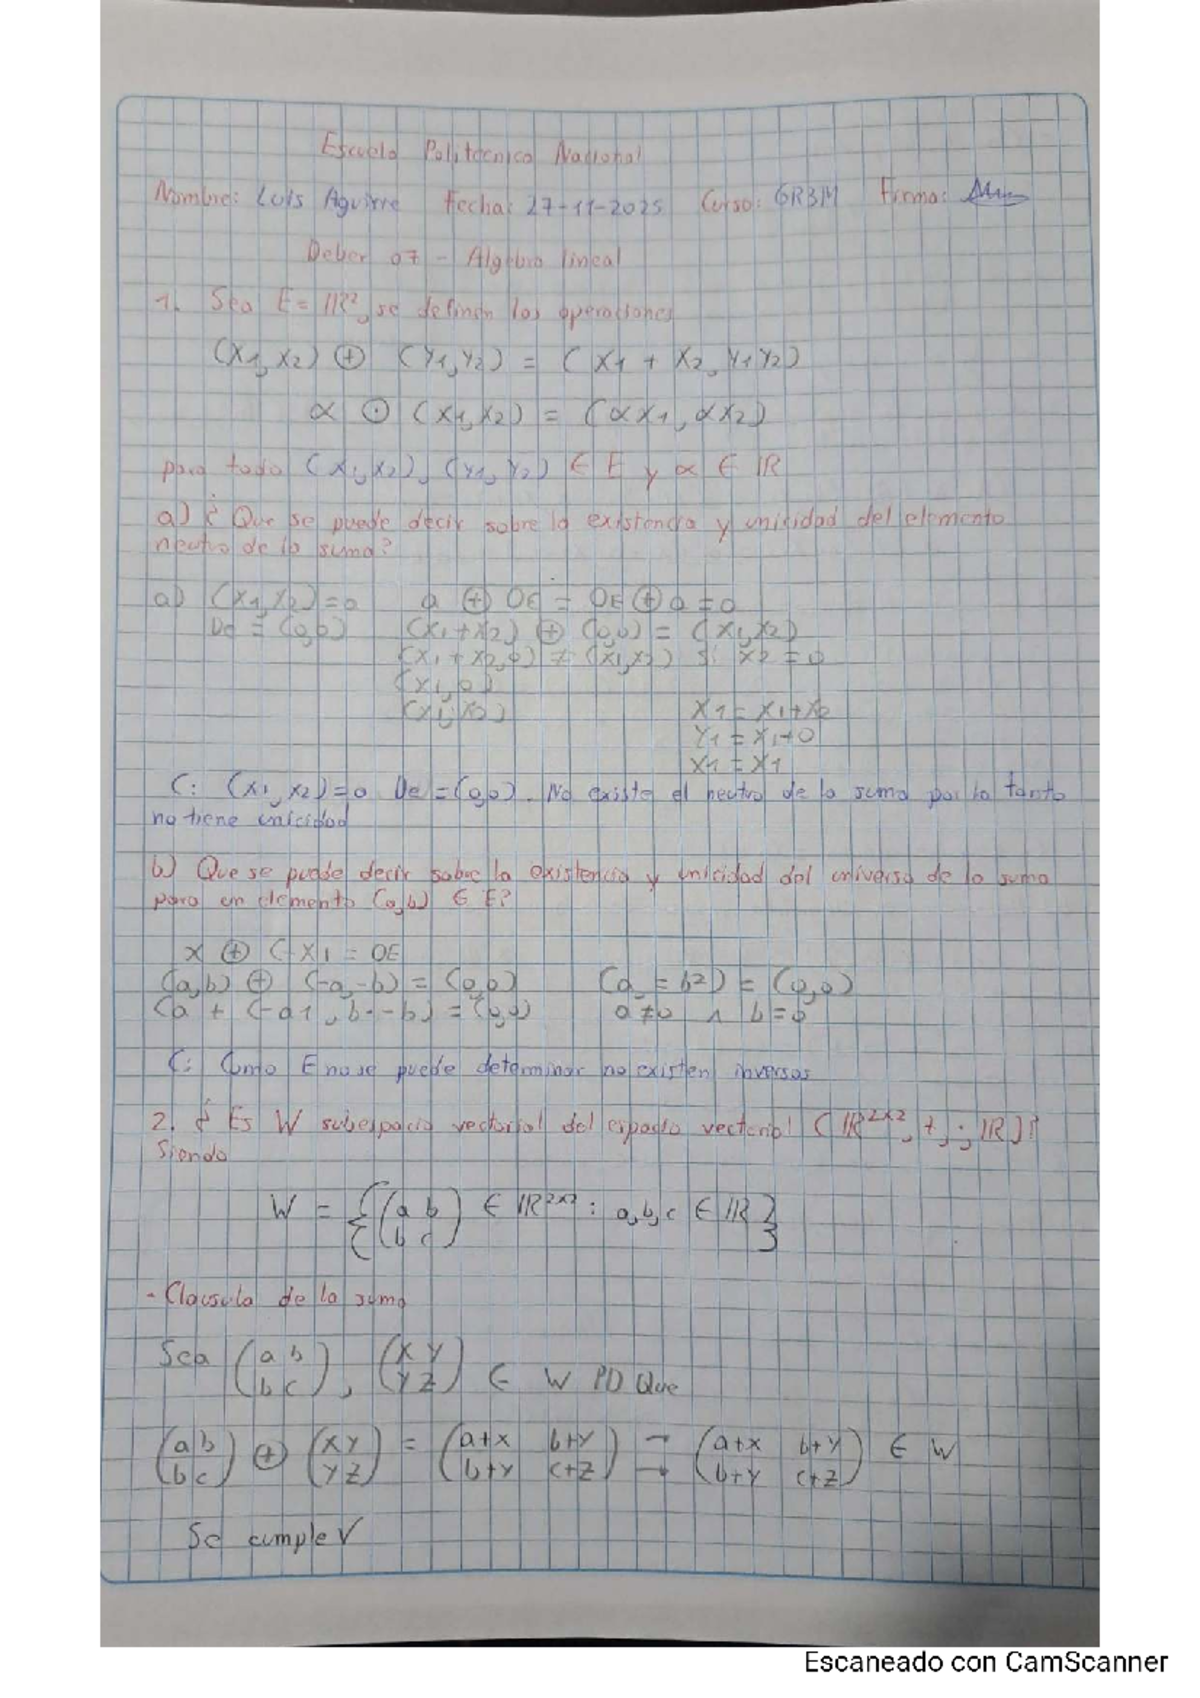 Escuela Politecnica Nacional
Nombre: Luis Aguirre Fecha: 27-11-2025 Curso: GR3M Firma:
Deber 07 - Algebra lineal
1. Sea E = IR², se definen las operaciones
(x1, x2) ⊕ (y1, y2) = (x1 + x2, y1 y2)
α ⊙ (x1, x2) = (αx1, αx2)
para todo (x1, x2), (y1, y2) ∈ E y α ∈ IR
a) ¿ Que se puede decir sobre la existencia y unicidad del elemento
neutro de la suma?
a) (x1, x2) = 0 a ⊕ 0E = 0E ⊕ a = 0
0e = (0,0) (x1 + x2) ⊕ (0,0) = (x1, x2)
(x1 + x2, 0) ≠ (x1, x2) si x2 = 0
(x1, 0)
(x1, x2) x1 = x1 + x2
x1 = x1 + 0
x1 = x1
C: (x1, x2) = 0 0e = (0,0). No existe el neutro de la suma por lo tanto
no tiene unicidad
b) Que se puede decir sobre la existencia y unicidad del universo de la suma
para un elemento (a,b) ∈ E?
x ⊕ (-x) = 0E
(a,b) ⊕ (-a,-b) = (0,0) (a, -b2) = (0,0)
(a + (-a), b·-b) = (0,0) a ≠ 0 ∧ b = 0
C: Como E no se puede determinar no existen inversos
2. ¿ Es W subespacio vectorial del espacio vectorial (IR²ˣ², +, ·, IR)?
Siendo
W = {(a b
b c) ∈ IR²ˣ² : a,b,c ∈ IR}
- Clausula de la suma
Sea (a b
b c), (x y
y z) ∈ W PD Que
(a b
b c) ⊕ (x y
y z) = (a+x b+y
b+y c+z) → (a+x b+y
b+y c+z) ∈ W
Se cumple √
Escaneado con CamScanner